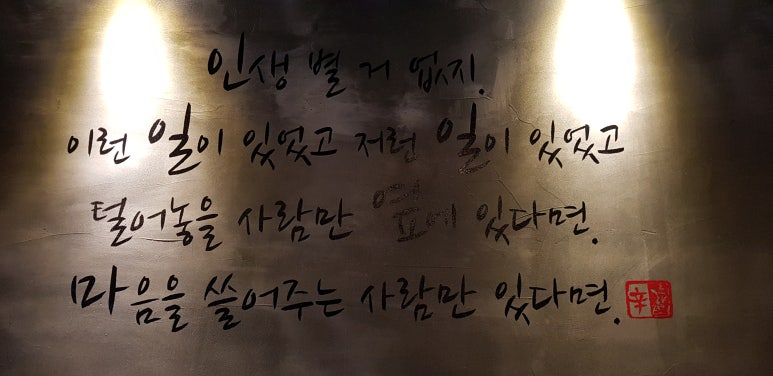 인생 별 거 없지.
이런 일이 있었고 저런 일이 있었고
털어놓을 사람만 옆에 있다면.
마음을 쓸어주는 사람만 있다면.